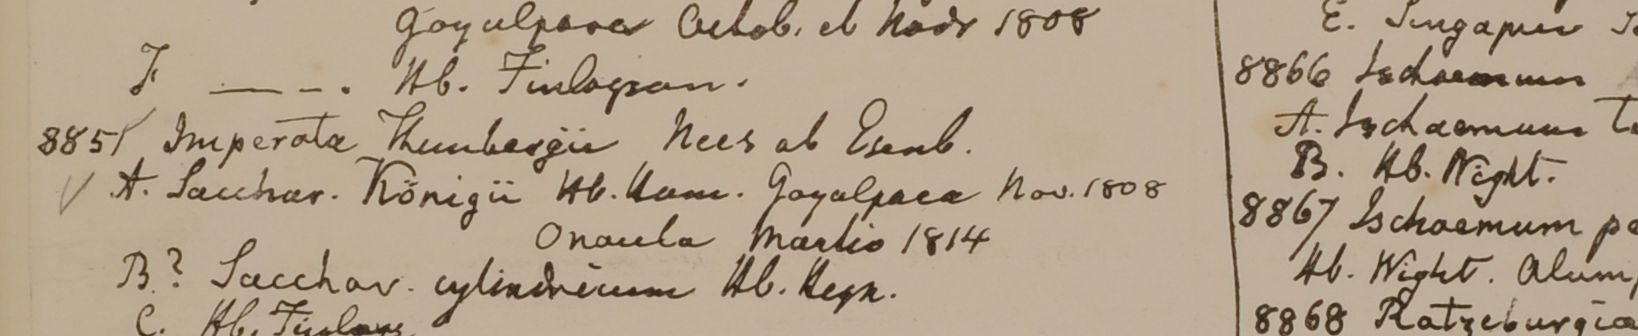 Goyalpara Octob. et Novr 1808
F. — – –. Hb. Finlayson.
8851 Imperata Thunbergii Nees ab Esenb.
A. Sacchar. Königii Hb. Ham. Goyalpara Nov. 1808
Martio 1814
B? Sacchar. cylindricum Hb. Heyn.
C. Hb. Finlays
E. Singapur
8866 Ischaemum
A. Ischaemum
B. Hb. Wight.
8867 Ischaemum
Hb. Wight.
8868 Ratzeburgia